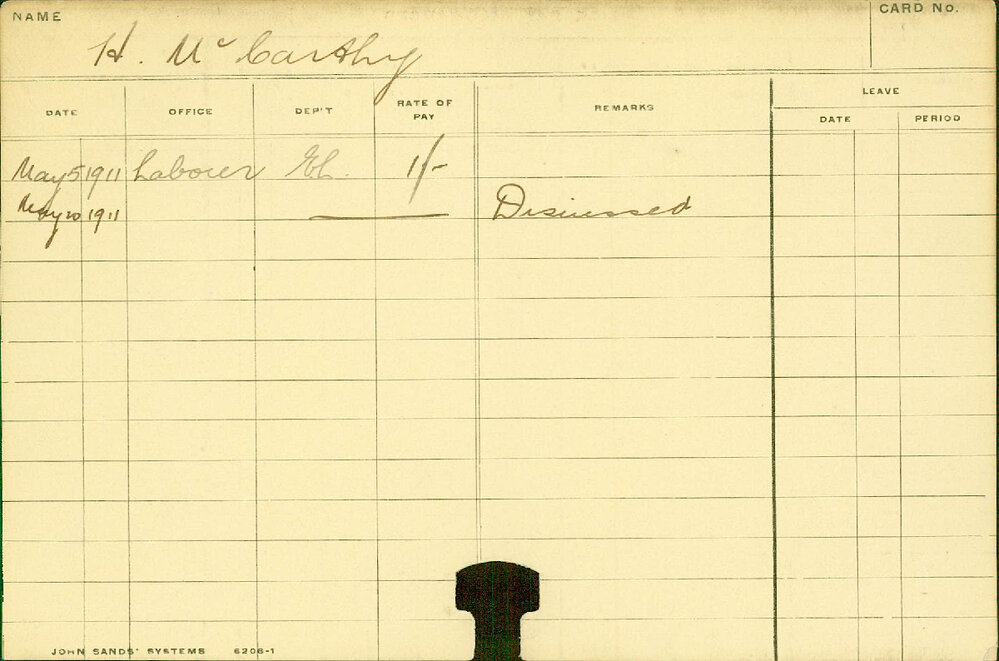 NAME
CARD No.
H. Mc Carthy
DATE OFFICE DEP'T RATE OF PAY REMARKS LEAVE
DATE PERIOD
May 5 1911 Labourer El. 1/-
May 20 1911 Dismissed
JOHN SANDS' SYSTEMS 6206-1